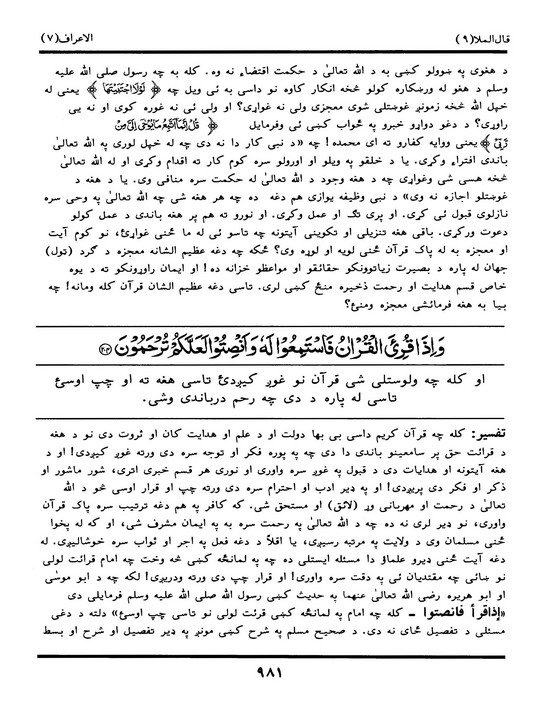 قال الملا(۹)
الاعراف(۷)
د هغوی په ښوولو کښی به د الله تعالیٰ د حکمت اقتضاء نه وه. کله به چه رسول صلی الله علیه
وسلم د هغو له ورښکاره کولو څخه انکار کاوه نو داسی به ئی ویل چه ﴿ لَوْلَا اجْتَبَيْتَهَا ﴾ یعنی له
خپل الله څخه زمونږ غوښتلی شوی معجزی ولی نه غواړی؟ او ولی ئی نه غوره کوی او نه یی
راوړی؟ د دغو دواړو خبرو په ځواب کښی ئی وفرمایل ﴿ قُلْ إِنَّمَا أَتَّبِعُ مَا يُوحَىٰ إِلَيَّ مِنْ
رَبِّي ﴾ یعنی ووایه کفارو ته ای محمده! چه «د نبی کار دا نه دی چه له خپل لوری په الله تعالیٰ
باندی افتراء وکړی. یا د خلقو په ویلو او اورولو سره کوم کار ته اقدام وکړی او له الله تعالیٰ
څخه هسی شی وغواړی چه د هغه وجود د الله تعالیٰ له حکمت سره منافی وی. یا د هغه د
غوښتلو اجازه نه وی» د نبی وظیفه یوازی هم دغه ده چه هر هغه شی چه الله تعالیٰ په وحی سره
نازلوی قبول ئی کړی. او پری تګ او عمل وکړی. او نورو ته هم پر هغه باندی د عمل کولو
دعوت ورکړی. باقی هغه تنزیلی او تکوینی آیتونه چه تاسو ئی له ما ځنی غواړئ، نو کوم آیت
او معجزه به له پاک قرآن ځنی لویه او لوړه وی؟ ځکه چه دغه عظیم الشانه معجزه د ګرد (ټول)
جهان له پاره د بصیرت زیاتوونکو حقائقو او مواعظو خزانه ده! او ایمان راوړونکو ته د یوه
خاص قسم هدایت او رحمت ذخیره منځ کښی لری. تاسی دغه عظیم الشان قرآن کله ومانه! چه
بیا به هغه فرمائشی معجزه ومنئ؟
وَإِذَا قُرِئَ الْقُرْآنُ فَاسْتَمِعُوا لَهُ وَأَنْصِتُوا لَعَلَّكُمْ تُرْحَمُونَ ﴿۲۰۴﴾
او کله چه ولوستلی شی قرآن نو غوږ کیږدئ تاسی هغه ته او چپ اوسئ
تاسی له پاره د دی چه رحم درباندی وشی.
تفسیر: کله چه قرآن کریم داسی بی بها دولت او د علم او هدایت کان او ثروت دی نو د هغه
د قرائت حق پر سامعینو باندی دا دی چه په پوره فکر او توجه سره دی ورته غوږ کیږدی! او د
هغه آیتونه او هدایات دی د قبول په غوږ سره واوری او نوری هر قسم خبری اتری، شور ماشور او
ذکر او فکر دی پریږدی! او په ډیر ادب او احترام سره دی ورته چپ او قرار اوسی څو د الله
تعالیٰ د رحمت او مهربانی وړ (لائق) او مستحق شی. که کافر په هم دغه ترتیب سره پاک قرآن
واوری، نو ډیر لری نه ده چه د الله تعالیٰ په رحمت سره به په ایمان مشرف شی، او که له پخوا
ځنی مسلمان وی د ولایت په مرتبه رسیږی، یا اقلاً د دغه فعل په اجر او ثواب سره خوشالیږی. له
دغه آیت ځنی ډیرو علماؤ دا مسئله ایستلی ده چه په لمانځه کښی څه وخت چه امام قرائت لولی
نو ښائی چه مقتدیان ئی په دقت سره واوری! او قرار چپ دی ورته ودریږی! لکه چه د ابو موسٰی
او ابو هریره رضی الله تعالیٰ عنهما په حدیث کښی رسول الله صلی الله علیه وسلم فرمایلی دی
«إذاقرأ فانصتوا ـ کله چه امام په لمانځه کښی قرئت لولی نو تاسی چپ اوسئ» دلته د دغی
مسئلی د تفصیل ځای نه دی. د صحیح مسلم په شرح کښی مونږ په ډیر تفصیل او شرح او بسط
۹۸۱